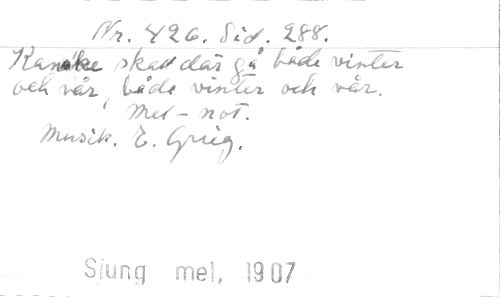 Nr. 426. Sid. 288.
Kanske skall där gå både vinter
och vår, både vinter och vår.
Mel-not.
Musik. E. Grieg.
Sjung mel, 1907